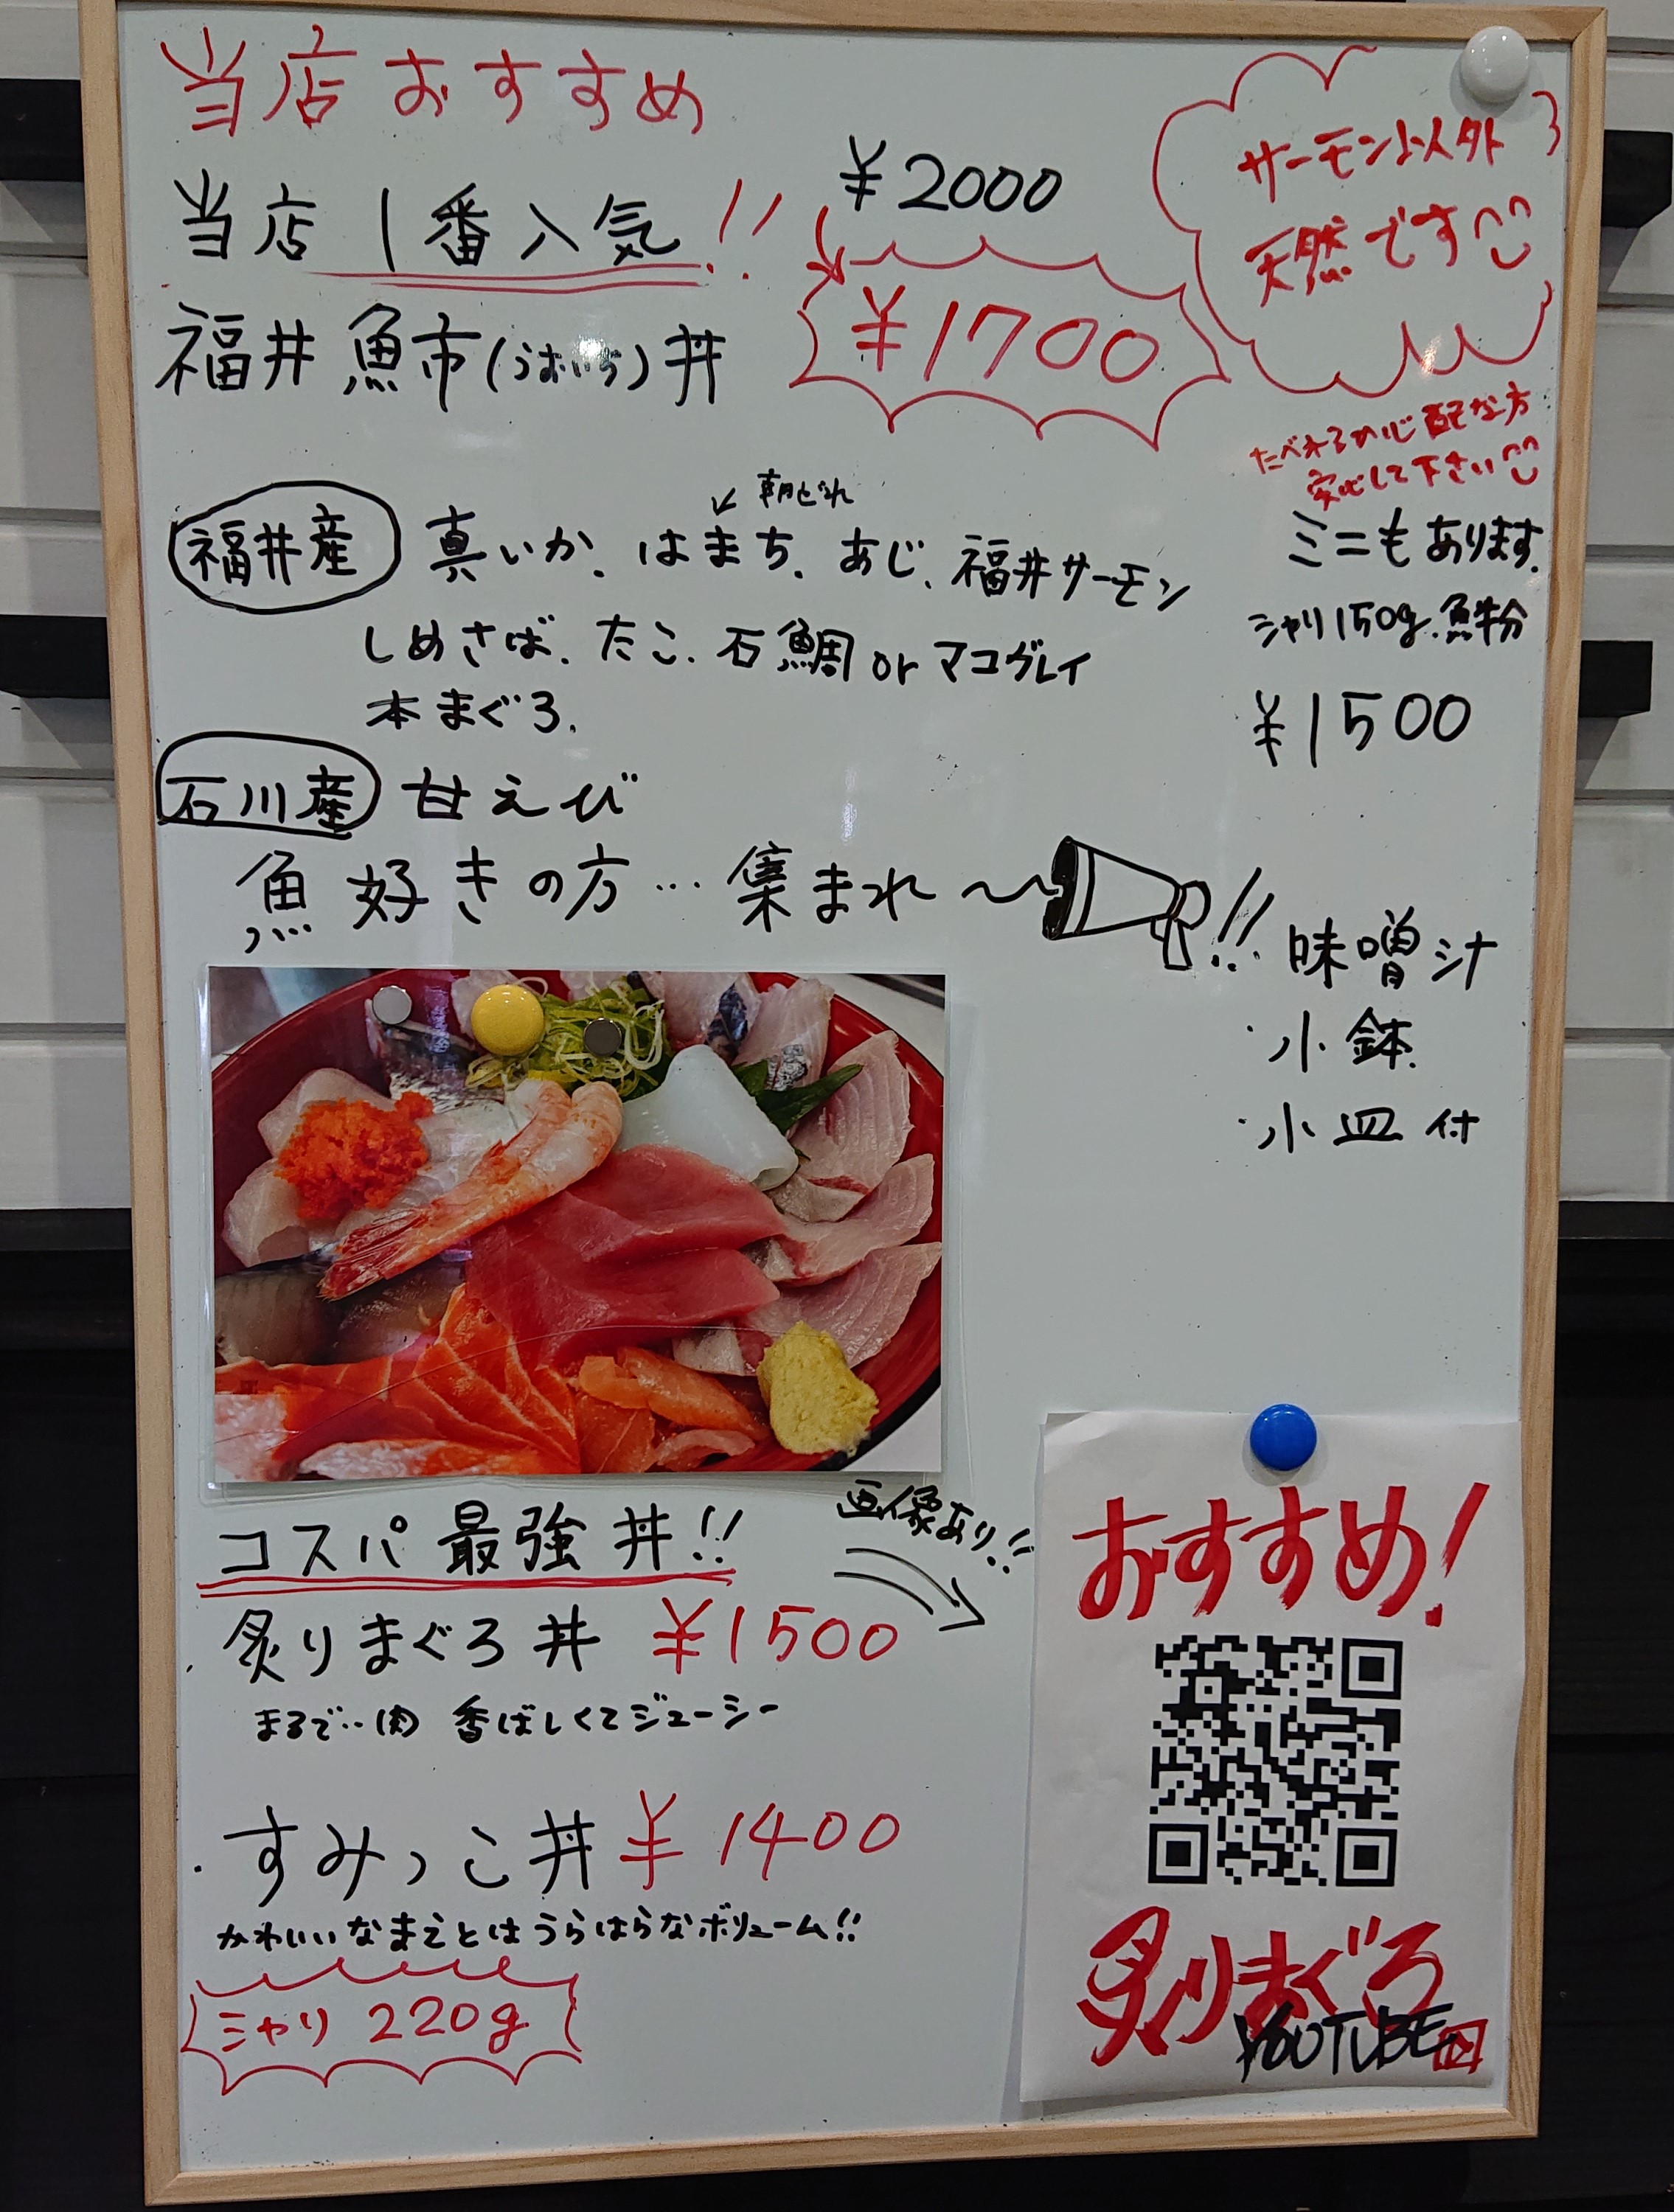 当店おすすめ
当店 1番人気!!
¥2000
¥1700
福井 魚市(うおいち)丼
サーモン以外
天然です
たべれるか心配な方
安心して下さい
朝どれ
福井産 真いか、はまち、あじ、福井サーモン
しめさば、たこ、石鯛 or マコガレイ
本まぐろ、
石川産 甘えび
ミニもあります。
シャリ150g.魚半分
¥1500
魚好きの方…集まれ〜!!
味噌汁
・小鉢
・小皿 付
コスパ最強丼!!
画像あり!!
・炙りまぐろ丼 ¥1500
まるで‥肉 香ばしくてジューシー
・すみっこ丼 ¥1400
かわいいなまえとはうらはらなボリューム!!
シャリ 220g
おすすめ!
炙りまぐろ
YOUTUBE